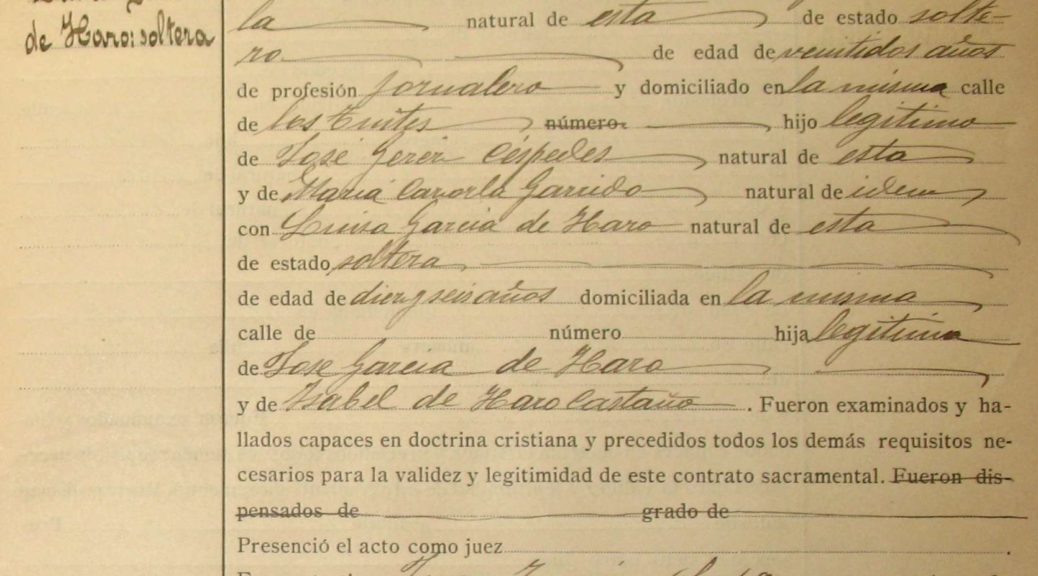 de Haro: soltera
la natural de esta de estado solte-
ro de edad de veintidos años
de profesión jornalero y domiciliado en la misma calle
de los número. hijo legitimo
de José Jerez Céspedes natural de esta
y de María Cazorla Garrido natural de idem
con Luisa Garcia de Haro natural de esta
de estado soltera
de edad de diez y seis años domiciliada en la misma
calle de número hija legitima
de Jose Garcia de Haro
y de Isabel de Haro Castaño. Fueron examinados y ha-
llados capaces en doctrina cristiana y precedidos todos los demás requisitos ne-
cesarios para la validez y legitimidad de este contrato sacramental. Fueron dis-
pensados de grado de
Presenció el acto como juez .